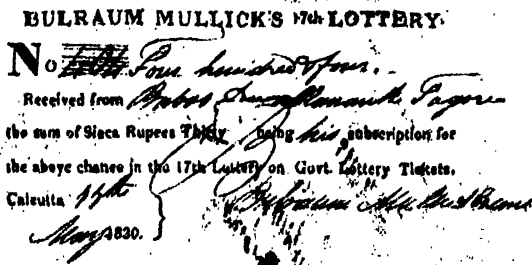 BULRAUM MULLICK'S 17th LOTTERY.
No Four hundred & four.
Received from Baboo Tagore
the sum of Sicca Rupees Thirty being his subscription for
the above chance in the 17th Lottery on Govt. Lottery Tickets.
Calcutta Bulraum Mullick
May 1830.